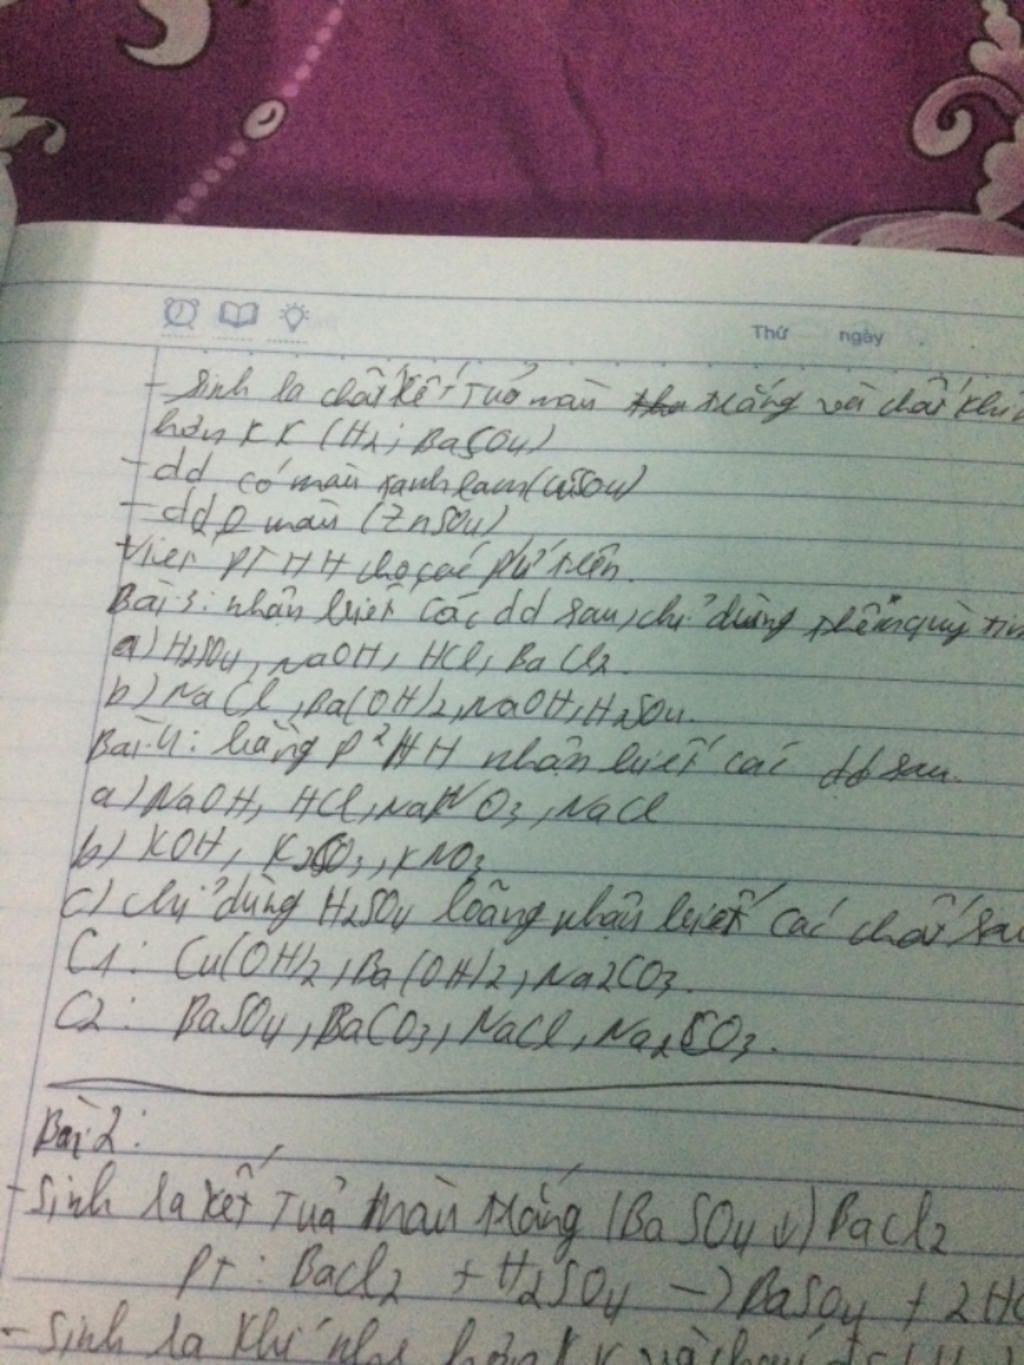 Thứ ngày
- Sinh ra chất kết tủa màu trắng và chất khí
hơn KK (H2; BaSO4)
- dd có màu xanh lam (CuSO4)
- dd 0 màu (ZnSO4)
Viết PTHH cho các pứ trên.
Bài 3: nhận biết các dd sau, chỉ dùng thêm quỳ tím
a) H2SO4, NaOH, HCl, BaCl2.
b) NaCl, Ba(OH)2, NaOH, H2SO4.
Bài 4: bằng p² HH nhận biết các dd sau.
a) NaOH, HCl, NaNO3, NaCl
b) KOH, , KNO3
c) chỉ dùng H2SO4 loãng nhận biết các chất sau
C1: Cu(OH)2, Ba(OH)2, Na2CO3.
C2: BaSO4, BaCO3, NaCl, Na2CO3.
Bài 2:
- Sinh ra kết tủa màu trắng (BaSO4 ↓) BaCl2
PT: BaCl2 + H2SO4 -> BaSO4 + 2HC
- Sinh ra khí nhẹ hơn KK và